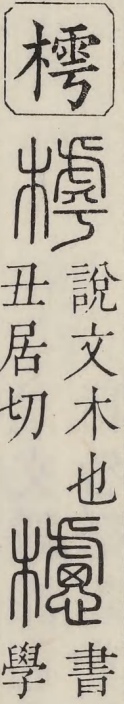 樗
說文木也
丑居切
書
學